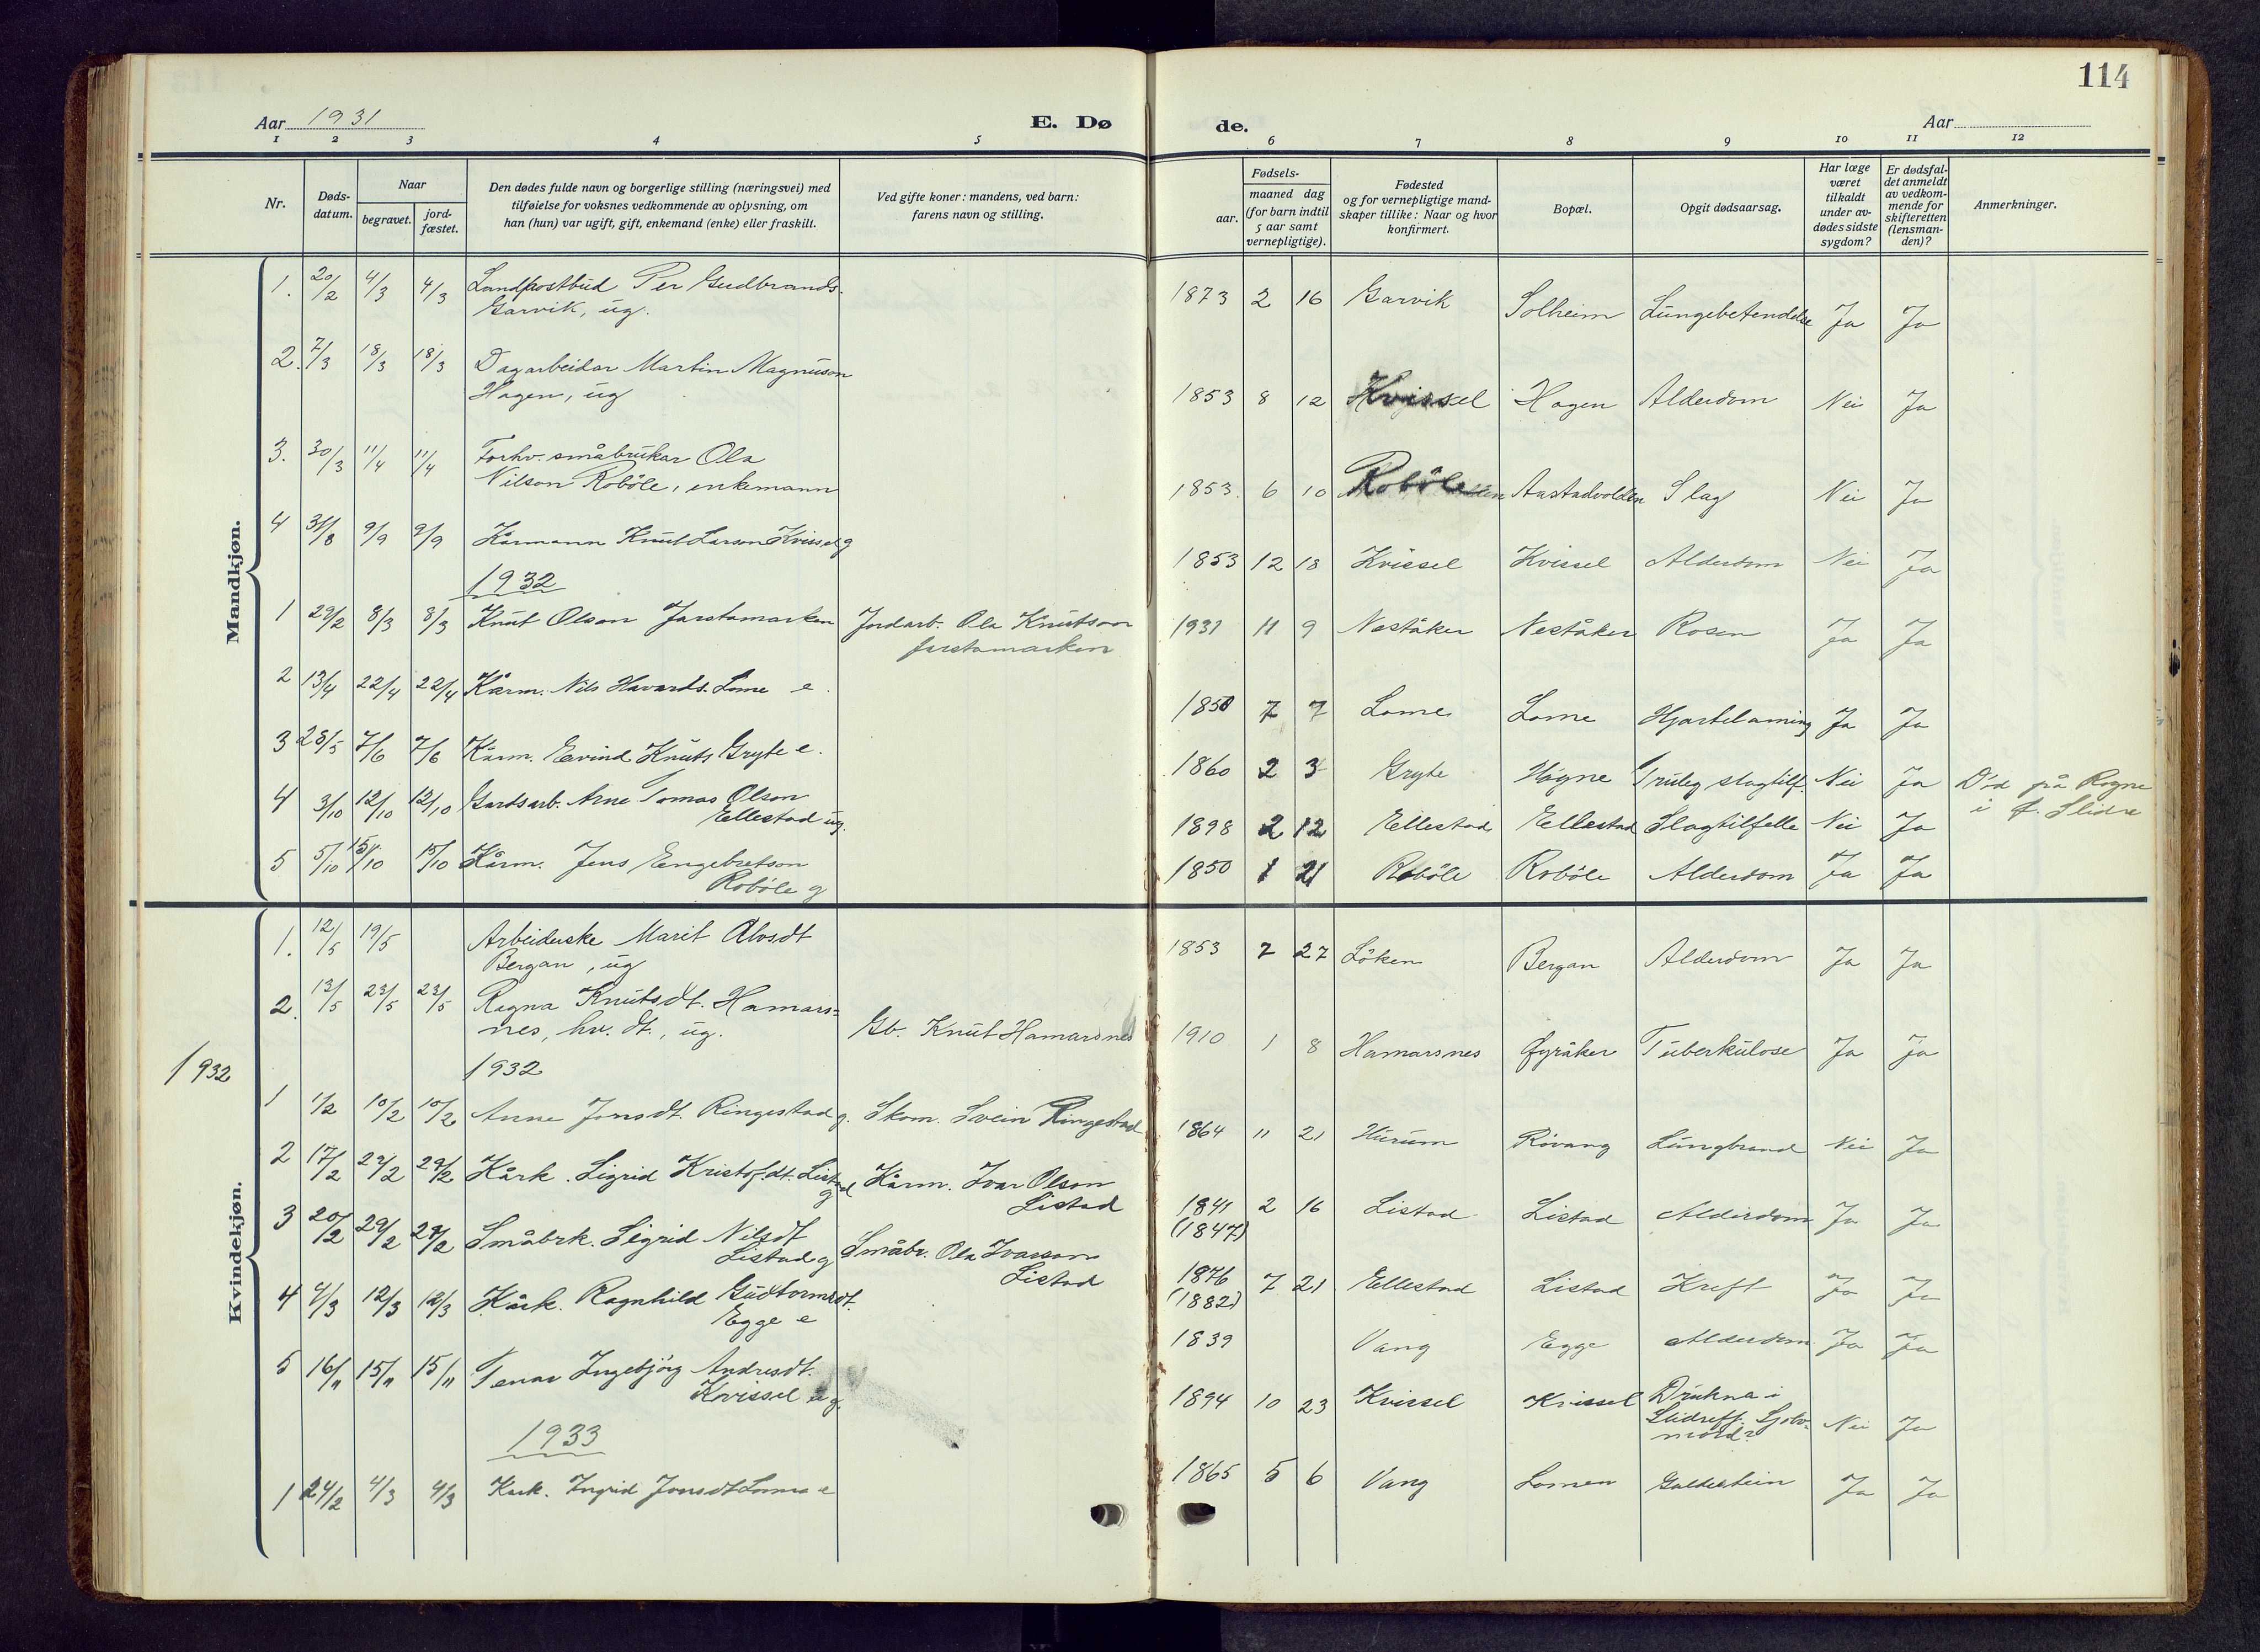 114
Aar 1931
E. Dø
de.
Aar
1 2 3 4 5 6 7 8 9 10 11 12
Nr.
Døds-
datum.
Naar
begravet.
jord-
fæstet.
Den dødes fulde navn og borgerlige stilling (næringsvei) med
tilføielse for voksnes vedkommende av oplysning, om
han (hun) var ugift, gift, enkemand (enke) eller fraskilt.
Ved gifte koner: mandens, ved barn:
farens navn og stilling.
Fødsels-
aar.
maaned dag
(for barn indtil
5 aar samt
vernepligtige).
Fødested
og for vernepligtige mand-
skaper tillike: Naar og hvor
konfirmert.
Bopæl.
Opgit dødsaarsag.
Har læge
været
tilkaldt
under av-
dødes sidste
sygdom?
Er dødsfal-
det anmeldt
av vedkom-
mende for
skifteretten
(lensman-
den)?
Anmerkninger.
Mandkjøn.
1. 20/2 4/3 4/3 Landpostbud Per Gudbrands. 1873 2 16 Garvik Solheim Lungebetendelse Ja Ja
Garvik, ug.
2. 7/3 18/3 18/3 Dagarbeidar Martin Magnuson 1853 8 12 Kvissel Hagen Alderdom Nei Ja
Hagen, ug
3. 30/3 11/4 11/4 Forhv. småbrukar Ola 1853 6 10 Robøle Aastadvolden Slag Nei Ja
Nilson Robøle, enkemann
4 31/8 9/9 9/9 Kårmann Knut Larson Kvissel g 1853 12 18 Kvissel Kvissel Alderdom Nei Ja
1932
1 29/2 8/3 8/3 Knut Olson Jarstamarken Jordarb. Ola Knutson 1931 11 9 Neståker Neståker Rosen Ja Ja
Jarstamarken
2 13/4 22/4 22/4 Kårm. Nils Havards. Lome e. 1850 7 7 Lome Lome Hjartelaming Ja Ja
3 28/5 7/6 7/6 Kårm. Eivind Knuts Gryte e. 1860 2 3 Gryte Høgne Truleg slagtilf. Nei Ja Død på Rogne
i Ø. Slidre
4 3/10 12/10 12/10 Gardsarb. Arne Tomas Olson 1898 2 12 Ellestad Ellestad Slagtilfelle Nei Ja
Ellestad ug.
5 5/10 15/10 15/10 Kårm. Jens Engebretson 1850 1 21 Robøle Robøle Alderdom Ja Ja
Robøle g
Kvindekjøn.
1. 12/5 19/5 Arbeiderske Marit Alvsdt 1853 7 27 Løken Bergan Alderdom Ja Ja
Bergan, ug
2. 13/5 23/5 23/5 Ragna Knutsdt. Hamars= Gb. Knut Hamarsnes 1910 1 8 Hamarsnes Øyråker Tuberkulose Ja Ja
nes, hv. dt., ug.
1932
1932
1 1/2 10/2 10/2 Anne Jonsdt. Ringestad g. Skom. Svein Ringestad 1864 11 21 Hurum Røvang Lungbrand Nei Ja
2 17/2 29/2 29/2 Kårk. Sigrid Kristofdt. Listad Kårm. Ivar Olson 1841 2 16 Listad Listad Alderdom Ja Ja
g Listad (1847)
3 20/2 29/2 29/2 Småbrk. Sigrid Nilsdt Småbr. Ola Ivarson 1876 7 21 Ellestad Listad Kreft Ja Ja
Listad g Listad (1882)
4 4/3 12/3 12/3 Kårk. Ragnhild Gudtormsdt. 1839 Vang Egge Alderdom Ja Ja
Egge e
5 16/11 15/11 15/11 Tenar Ingebjørg Andresdt. 1894 10 23 Kvissel Kvissel Drukna i
Kvissel ug. Slidrefj. Sjølv- Nei Ja
mord?
1933
1 24/2 4/3 4/3 Kårk. Ingrid Jonsdt Lome e 1865 5 6 Vang Lomen Galdestein Ja Ja